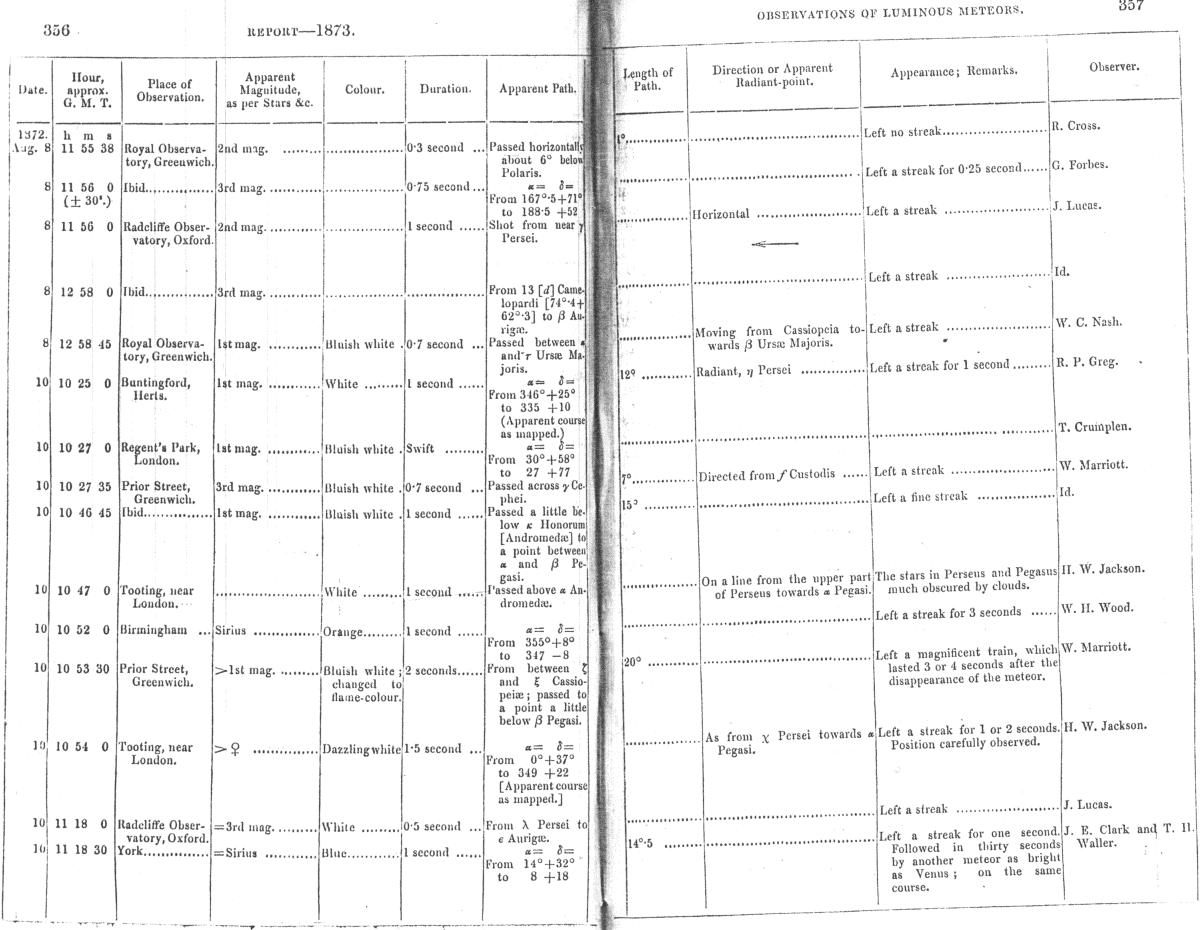 356
REPORT—1873.
Date.
Hour,
approx.
G. M. T.
Place of
Observation.
Apparent
Magnitude,
as per Stars &c.
Colour.
Duration.
Apparent Path.
1872.
h m s
Aug. 8
11 55 38
Royal Observa-
tory, Greenwich.
2nd mag. ........
................
0·3 second ...
Passed horizontally
about 6° below
Polaris.
8
11 56 0
(± 30ˢ.)
Ibid.................
3rd mag. ............
................
0·75 second ...
α= δ=
From 167°·5+71°
to 188·5 +52
8
11 56 0
Radcliffe Obser-
vatory, Oxford.
2nd mag. ............
................
1 second ......
Shot from near γ
Persei.
8
12 58 0
Ibid.................
3rd mag. ............
................
................
From 13 [d] Came-
lopardi [74°·4+
62°·3] to β Au-
rigæ.
8
12 58 45
Royal Observa-
tory, Greenwich.
1st mag. ............
Bluish white .
0·7 second ...
Passed between
and τ Ursæ Ma-
joris.
10
10 25 0
Buntingford,
Herts.
1st mag. ............
White .........
1 second ......
α= δ=
From 346°+25°
to 335 +10
(Apparent course
as mapped.)
10
10 27 0
Regent's Park,
London.
1st mag. ............
Bluish white .
Swift .........
α= δ=
From 30°+58°
to 27 +77
10
10 27 35
Prior Street,
Greenwich.
3rd mag. ............
Bluish white .
0·7 second ...
Passed across γ Ce-
phei.
10
10 46 45
Ibid.................
1st mag. ............
Bluish white .
1 second ......
Passed a little be-
low κ Honorum
[Andromedæ] to
a point between
α and β Pe-
gasi.
10
10 47 0
Tooting, near
London.
....................
White .........
1 second ......
Passed above α An-
dromedæ.
10
10 52 0
Birmingham ...
Sirius .............
Orange.........
1 second ......
α= δ=
From 355°+8°
to 347 −8
10
10 53 30
Prior Street,
Greenwich.
>1st mag. .........
Bluish white ;
changed to
flame-colour.
2 seconds......
From between ζ
and ξ Cassio-
peiæ; passed to
a point a little
below β Pegasi.
10
10 54 0
Tooting, near
London.
>♀ .............
Dazzling white
1·5 second ...
α= δ=
From 0°+37°
to 349 +22
[Apparent course
as mapped.]
10
11 18 0
Radcliffe Obser-
vatory, Oxford.
=3rd mag. .........
White .........
0·5 second ...
From λ Persei to
ε Aurigæ.
10
11 18 30
York...............
=Sirius ............
Blue............
1 second ......
α= δ=
From 14°+32°
to 8 +18
OBSERVATIONS OF LUMINOUS METEORS.
357
Length of
Path.
Direction or Apparent
Radiant-point.
Appearance; Remarks.
Observer.
1°................
............................
Left no streak........................
R. Cross.
................
............................
Left a streak for 0·25 second......
G. Forbes.
................
Horizontal ........................
←
Left a streak ........................
J. Lucas.
................
............................
Left a streak ........................
Id.
................
Moving from Cassiopeia to-
wards β Ursæ Majoris.
Left a streak ........................
W. C. Nash.
12° ............
Radiant, η Persei ...............
Left a streak for 1 second .........
R. P. Greg.
................
............................
............................
T. Crumplen.
7°................
Directed from f Custodis ......
Left a streak ........................
W. Marriott.
15° ............
............................
Left a fine streak ..................
Id.
................
On a line from the upper part
of Perseus towards α Pegasi.
The stars in Perseus and Pegasus
much obscured by clouds.
H. W. Jackson.
................
............................
Left a streak for 3 seconds ......
W. H. Wood.
20° ............
............................
Left a magnificent train, which
lasted 3 or 4 seconds after the
disappearance of the meteor.
W. Marriott.
................
As from χ Persei towards α
Pegasi.
Left a streak for 1 or 2 seconds.
Position carefully observed.
H. W. Jackson.
................
............................
Left a streak ........................
J. Lucas.
14°·5 ............
............................
Left a streak for one second.
Followed in thirty seconds
by another meteor as bright
as Venus; on the same
course.
J. E. Clark and T. H.
Waller.